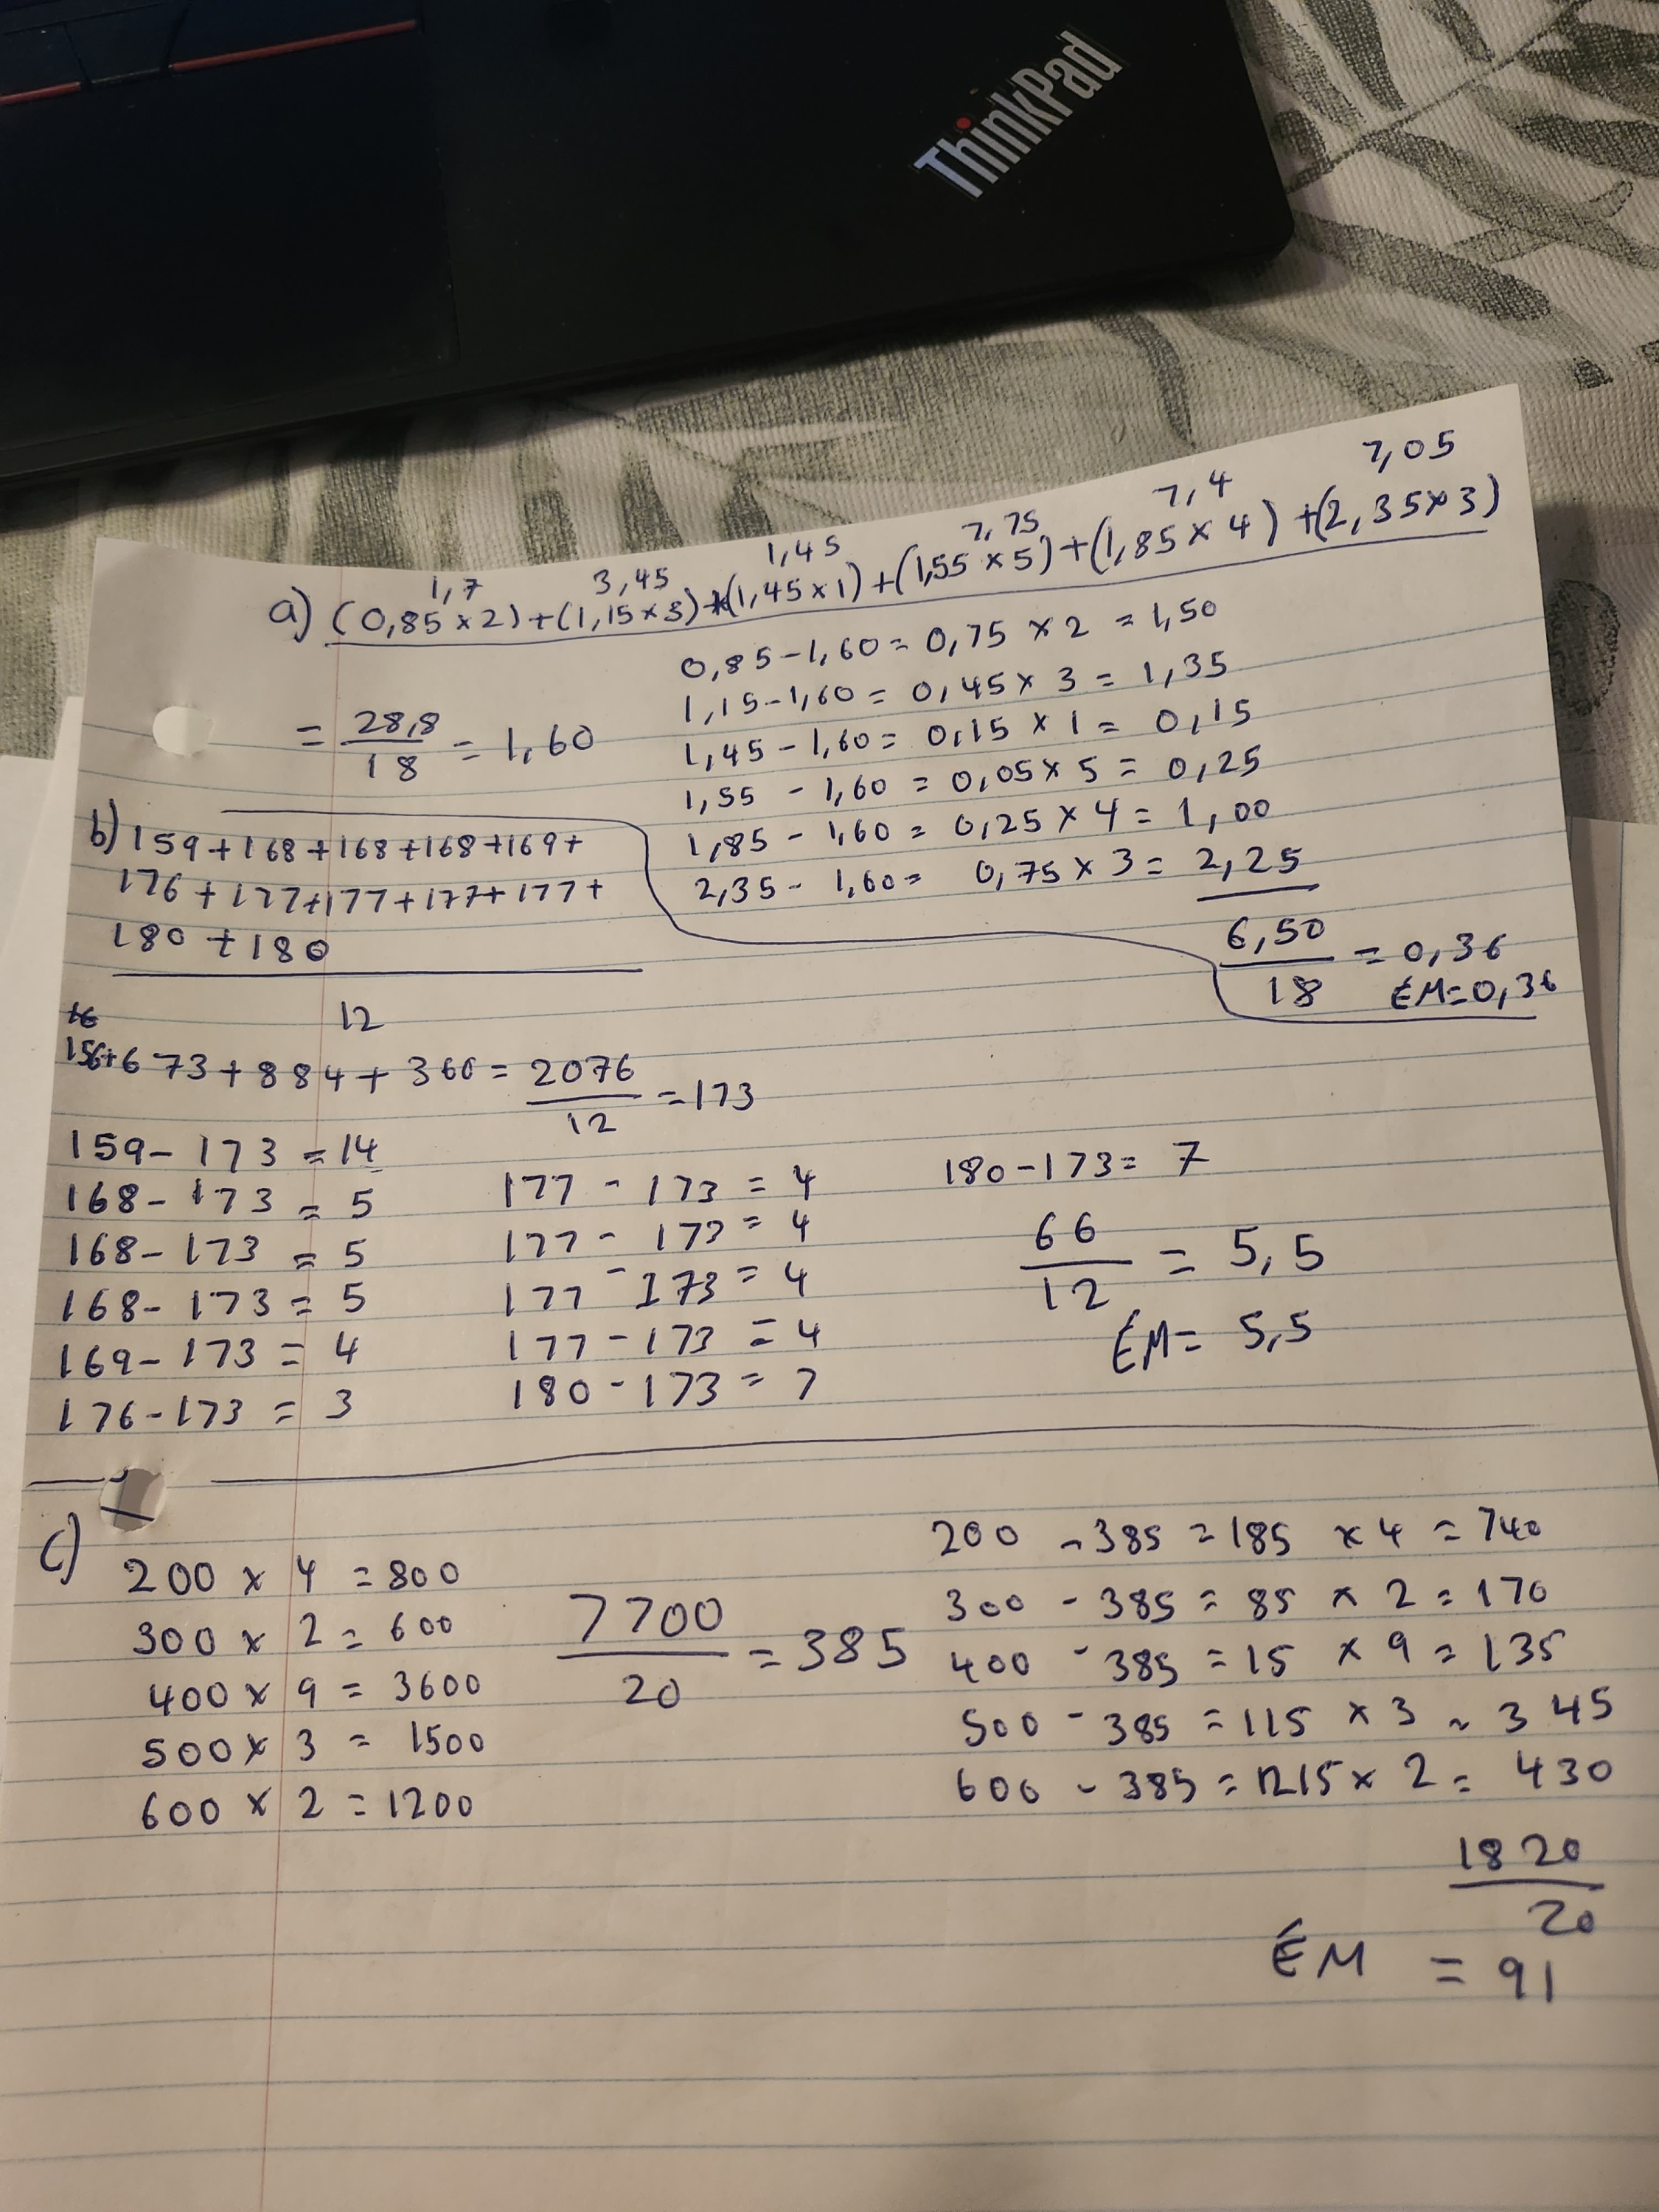 ThinkPad
1,7 3,45 1,45 7,75 7,4 7,05
a) (0,85 x 2) + (1,15 x 3) + (1,45 x 1) + (1,55 x 5) + (1,85 x 4) + (2,35 x 3)
= 28,8 / 18 = 1,60
0,85 - 1,60 = 0,75 x 2 = 1,50
1,15 - 1,60 = 0,45 x 3 = 1,35
1,45 - 1,60 = 0,15 x 1 = 0,15
1,55 - 1,60 = 0,05 x 5 = 0,25
1,85 - 1,60 = 0,25 x 4 = 1,00
2,35 - 1,60 = 0,75 x 3 = 2,25
6,50 / 18 = 0,36
ÉM = 0,36
b) 159 + 168 + 168 + 168 + 169 +
176 + 177 + 177 + 177 + 177 +
180 + 180
12
673 + 884 + 360 = 2076 / 12 = 173
159 - 173 = 14
168 - 173 = 5
168 - 173 = 5
168 - 173 = 5
169 - 173 = 4
176 - 173 = 3
177 - 173 = 4
177 - 173 = 4
177 - 173 = 4
177 - 173 = 4
180 - 173 = 7
180 - 173 = 7
66 / 12 = 5,5
ÉM = 5,5
c)
200 x 4 = 800
300 x 2 = 600
400 x 9 = 3600
500 x 3 = 1500
600 x 2 = 1200
7700 / 20 = 385
200 - 385 = 185 x 4 = 740
300 - 385 = 85 x 2 = 170
400 - 385 = 15 x 9 = 135
500 - 385 = 115 x 3 = 345
600 - 385 = 215 x 2 = 430
1820 / 20
ÉM = 91